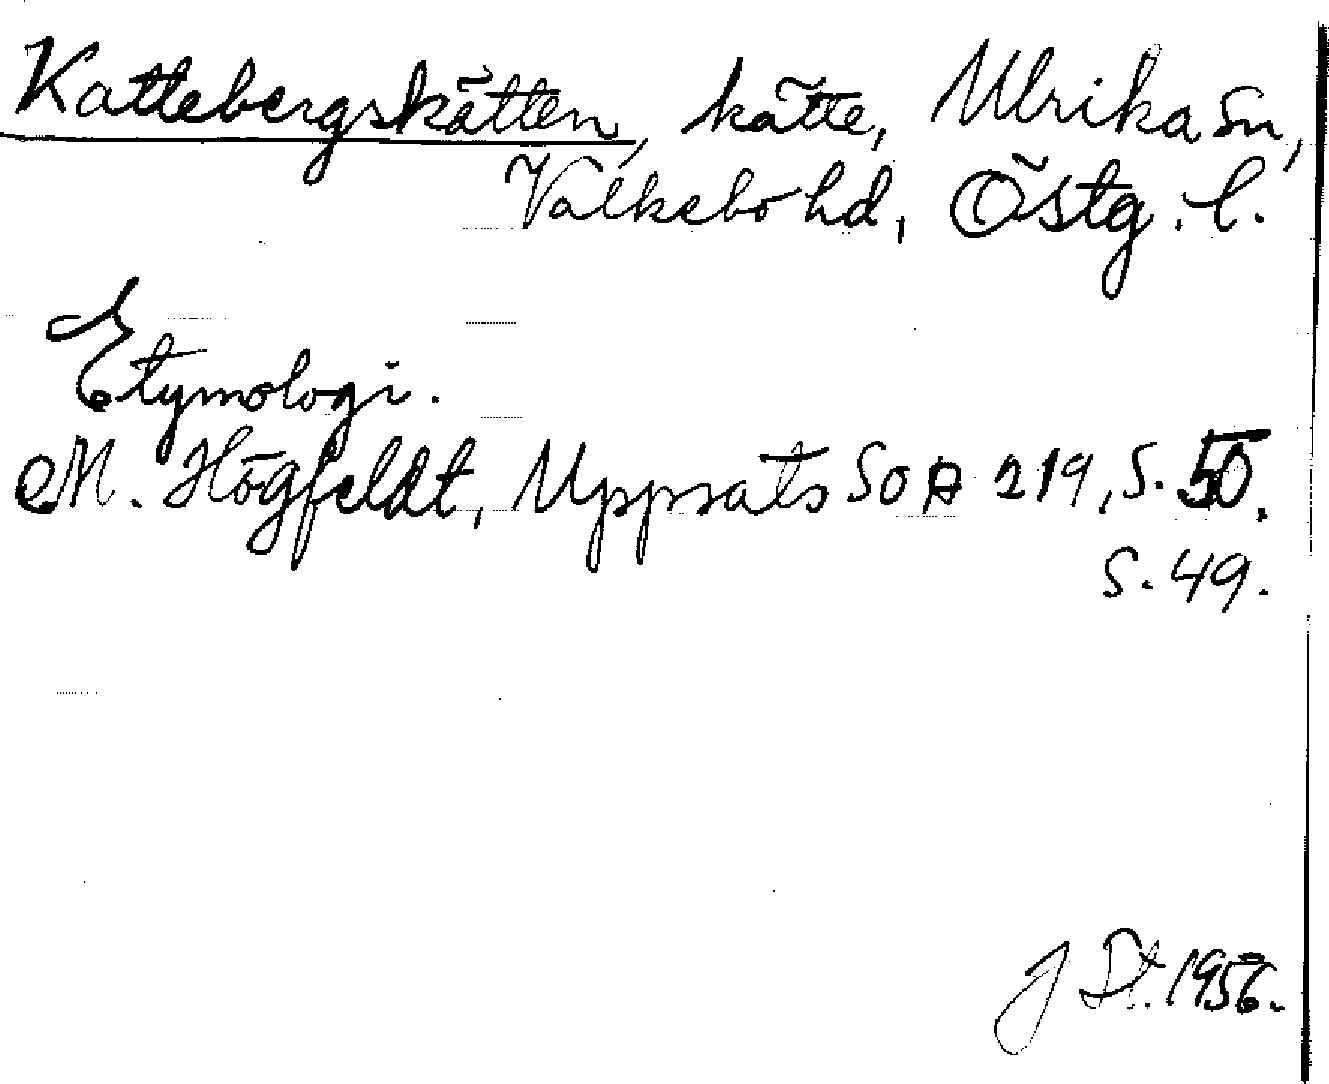 Kattebergskätten, kätte, Ulrika sn,
Valkebo hd, Östg. l.
Etymologi.
M. Högfeldt, Uppsats SOA 219, s. 50.
s. 49.
J St. 1956.